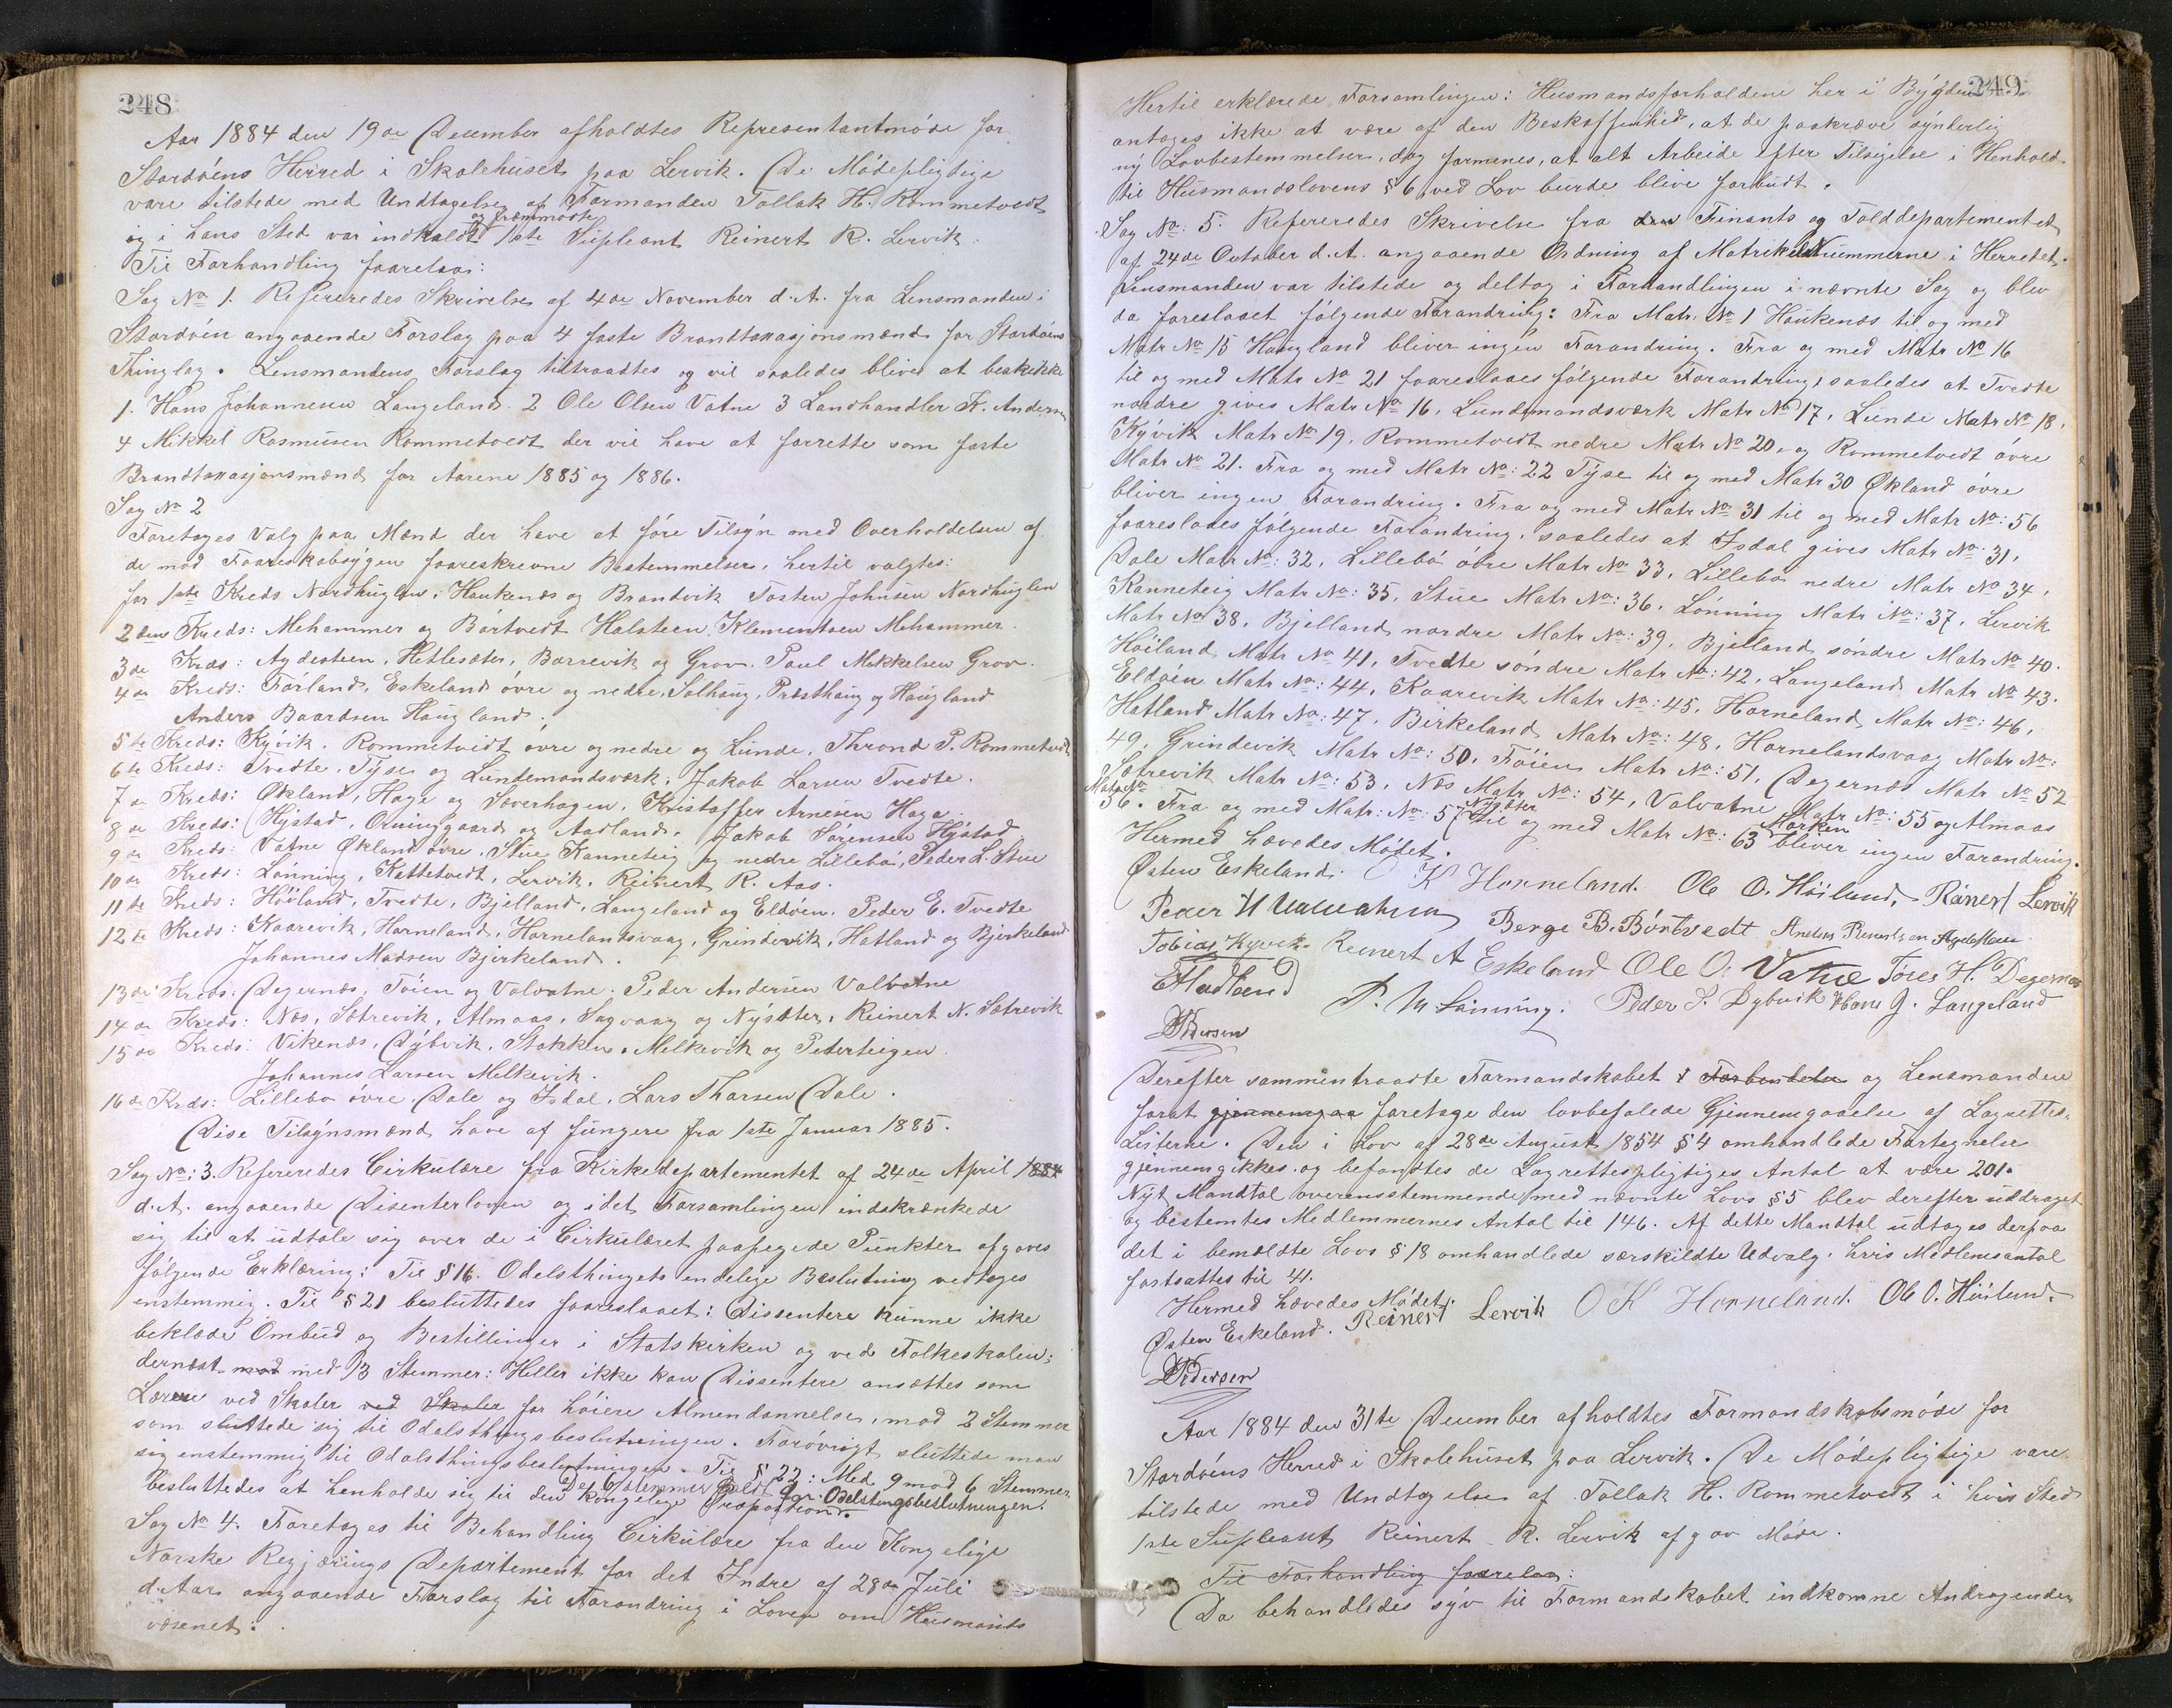 248
Aar 1884 den 19de December afholdtes Representantmøde for
Stordøens Herred i Skolehuset paa Lervik. De Mødepligtige
vare tilstede med Undtagelse af Formanden Tollak H. Rommetvedt
og fremmødte
og i hans Sted var indkaldt 1ste Supleant Reinert R. Lervik.
Til Forhandling foorelaa:
Sag No 1. Refereredes Skrivelse af 4de November d. A. fra Lensmanden i
Stordøen angaaende Forslag paa 4 faste Brandtaxasjonsmænd for Stordøens
Thinglag. Lensmandens Forslag tiltraadtes og vil saaledes blive at beskikke
1. Hans Johannesen Langeland. 2 Ole Olsen Vatne 3 Landhandler K. Andersen
4 Mikkel Rasmusen Rommetvedt der vil have at forrette som faste
Brandtaxasjonsmænd for Aarene 1885 og 1886.
Sag No 2
Foretoges Valg paa Mænd der have at føre Tilsyn med Overholdelsen af
de mod Faareskabsygen foareskrevne Bestemmelser, hertil valgtes:
for 1ste Kreds Nordhuglen, Haukenæs og Brandvik Tosten Johnsen Nordhuglen
2den Kreds: Mehammer og Børtvedt Halsteen Klementsen Mehammer.
3de Kreds: Agdesteen, Hetlesæter, Barrevik og Grov. Paul Mikkelsen Grov.
4de Kreds: Førland, Eskeland øvre og nedre, Solhaug, Præsthaug og Haugland
Anders Baardsen Haugland.
5te Kreds: Kyvik, Rommetvedt øvre og nedre og Lunde, Thrond P. Rommetvedt
6te Kreds: Tvedte, Tyse og Lundemandsværk, Jakob Larsen Tvedte.
7de Kreds: Økland, Hage og Sæverhagen, Kristoffer Arnesen Hage
8de Kreds: Hystad, Orninggaard og Aadland, Jakob Sørensen Hystad
9de Kreds: Vatne Økland øvre, Stue Kanneteig og nedre Lillebø, Peder L. Stue
10de Kreds: Lønning, Kattetvedt, Lervik, Reinert R. Aas.
11te Kreds: Høiland, Tvedte, Bjelland, Langeland og Eldøen. Peder E. Tvedte
12te Kreds: Kaarevik, Horneland, Hornelandsvaag, Grindevik, Hatland og Bjerkeland
Johannes Madsen Bjerkeland.
13de Kreds: Degernæs, Føien og Valvatne. Peder Andersen Valvatne
14de Kreds: Næs, Sætrevik, Almaas, Sagvaag og Nysæter, Reinert N. Sætrevik
15de Kreds: Vikenæs, Dybvik, Stokken, Melkevik og Peterteigen
Johannes Larsen Melkevik.
16de Kreds: Lillebø øvre, Dale og Isdal, Lars Tharsen Dale.
Disse Tilsynsmænd have at fungere fra 1ste Januar 1885.
Sag No: 3. Refereredes Cirkulære fra Kirkedepartementet af 24de April 1884
d. A. angaaende Disenterloven og idet Forsamlingen indskrænkede
sig til at udtale sig over de i Cirkulæret paapegede Punkter afgaves
følgende Erklæring: Til § 16. Odelsthingets endelige Beslutning vedtoges
enstemmig. Til § 21 besluttedes foareslaaet: Dissentere kunne ikke
beklæde Ombud og Bestillinger i Statskirken og ved Folkeskolen;
dernæst mod med 13 Stemmer: Heller ikke kan Dissentere ansættes som
Lærere ved Skoler ved Skoler for høiere Almendannelse, mod 2 Stemmer
som sluttede sig til Odelsthingsbeslutningen. Forøvrigt sluttede man
sig enstemmig til Odelsthingsbeslutningen. Til § 22: Med 9 mod 6 Stemmer
De 6 stemmer holdt for Odelstingsbeslutningen.
besluttedes at henholde sig til den kongelige Proposition.
Sag No 4. Foretoges til Behandling Cirkulære fra den Kongelige
Norske Regjærings Departement for det Indre af 28de Juli
d. Aar angaaende Forslag til Forandring i Loven om Husmands
væsenet:
249
Hertil erklærede Forsamlingen: Husmandsforholdene her i Bygden
antages ikke at være af den Beskaffenhed, at de paakræve synderlig
ny Lovbestemmelser, dog formenes, at alt Arbeide efter Tilsigelse i Henhold
til Husmandslovens § 6 ved Lov burde blive forbudt.
Sag No: 5. Refereredes Skrivelse fra den Finants og Tolddepartementet
af 24de October d. A. angaaende Ordning af Matrikelnummerne i Herredet.
Lensmanden var tilstede og deltog i Forhandlingen i nævnte Sag og blev
da foreslaaet følgende Forandring: Fra Matr. No 1 Haukenæs til og med
Matr No 15 Haugland bliver ingen Forandring. Fra og med Matr No 16
til og med Matr No 21 foareslaaes følgende Forandring, saaledes at Tvedte
nordre gives Matr No 16, Lundemandsværk Matr No 17, Lunde Matr No 18,
Kyvik Matr No 19, Rommetvedt nedre Matr No 20, og Rommetvedt øvre
Matr No 21. Fra og med Matr No: 22 Tyse til og med Matr 30 Økland øvre
bliver ingen Forandring. Fra og med Matr No 31 til og med Matr No: 56
foareslaaes følgende Forandring, saaledes at Isdal gives Matr No: 31,
Dale Matr No: 32, Lillebø øvre Matr No 33, Lillebø nedre Matr No 34,
Kanneteig Matr No: 35, Stue Matr No: 36, Lønning Matr No: 37, Lervik
Matr No 38, Bjelland nordre Matr No: 39, Bjelland søndre Matr No 40.
Høiland Matr No 41, Tvedte søndre Matr No: 42, Langeland Matr No 43.
Eldøen Matr No: 44, Kaarevik Matr No: 45, Horneland Matr No: 46,
Hatland Matr No: 47, Birkeland Matr No: 48, Hornelandsvaag Matr No:
49, Grindevik Matr No: 50, Føien Matr No: 51, Degernæs Matr No 52
Sætrevik Matr No: 53, Næs Matr No: 54, Valvatne Matr No: 55 og Almaas
Matr No
56. Fra og med Matr: No: 57 Nysæter til og med Matr No: 63 Marken bliver ingen Forandring.
Hermed hævedes Mødet.
Østen Eskeland. O K Horneland. Ole O. Høiland, Reinert Lervik
Berge B. Børtvedt Anders Reinertsen Agdesteen
Tobias Kyvik. Reinert A Eskeland Ole O. Vatne Tøres H. Degernæs
P. M Lønning. Peder S. Dybvik Hans J. Langeland
Derefter sammentraadte Formandskabet og Lensmanden
forat gjennemgaa foretage den lovbefalede Gjennemgaaelse af Lagrettes-
Listerne. Den i Lov af 28de August 1854 § 4 omhandlede Fortegnelse
gjennemgikkes og befandtes de Lagrettespligtiges Antal at være 201.
Nyt Mandtal overensstemmende med nævnte Lovs § 5 blev derefter uddraget
og bestemtes Medlemmernes Antal til 146. Af dette Mandtal udtoges derpaa
det i bemældte Lovs § 18 omhandlede særskildte Udvalg, hvis Medlemsantal
fastsattes til 41.
Hermed hævedes Mødet.
Østen Eskeland. Reinert Lervik O K Horneland. Ole O. Høiland.
Pedersen
Aar 1884 den 31te December afholdtes Formandskabsmøde for
Stordøens Herred i Skolehuset paa Lervik. De Mødepligtige vare
tilstede med Undtagelse af Tollak H. Rommetvedt i hvis Sted
1ste Supleant Reinert R. Lervik afgav Møde.
Til Forhandling foorelaa:
Da behandledes syv til Formandskabet indkomne Andragender